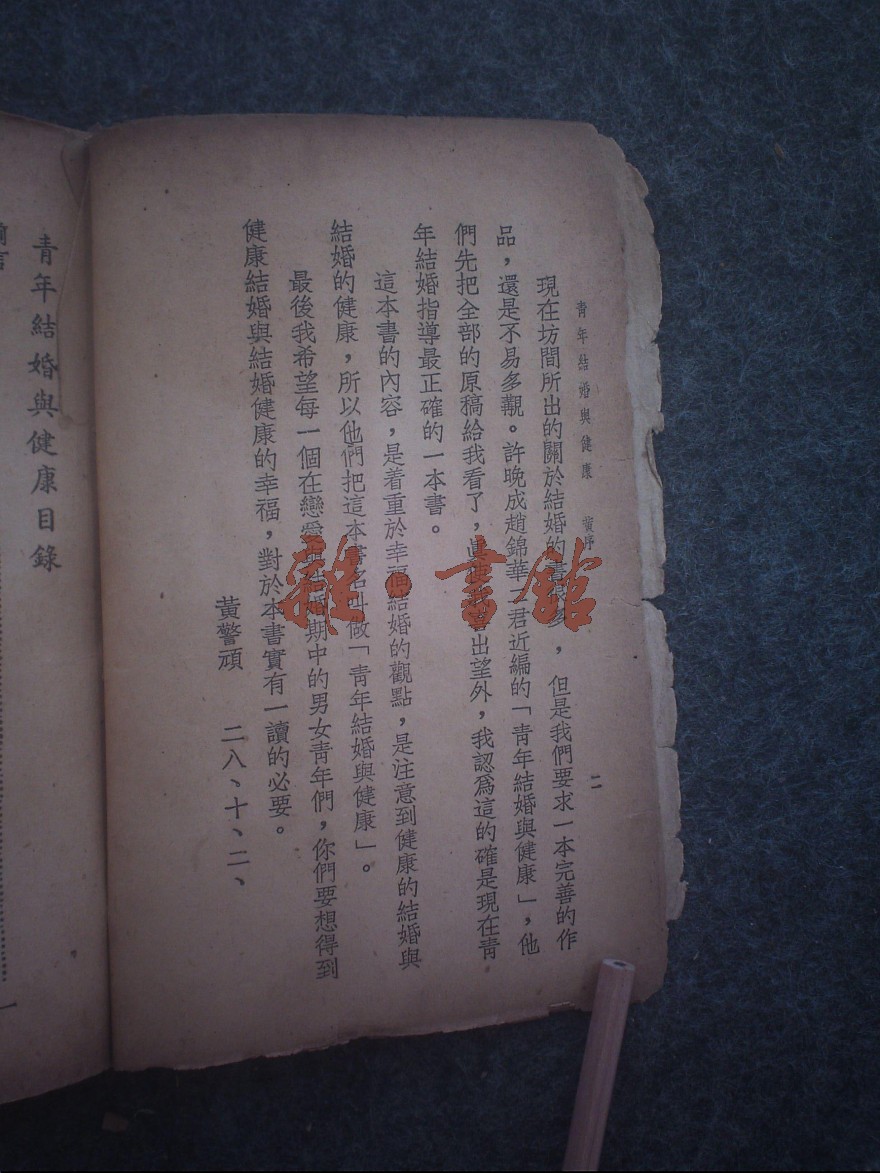 青年結婚與健康　黃序
二
現在坊間所出的關於結婚的書　多，但是我們要求一本完善的作
品，還是不易多觀。許晚成趙錦華二君近編的「青年結婚與健康」，他
們先把全部的原稿給我看了，眞　出望外，我認爲這的確是現在青
年結婚指導最正確的一本書。
這本書的內容，是着重於幸福結婚的觀點，是注意到健康的結婚與
結婚的健康，所以他們把這本書名叫做「青年結婚與健康」。
最後我希望每一個在戀愛　結婚期中的男女青年們，你們要想得到
健康結婚與結婚健康的幸福，對於本書實有一讀的必要。
黃警頑　二八、十、二、
青年結婚與健康目錄
一
雜·書館